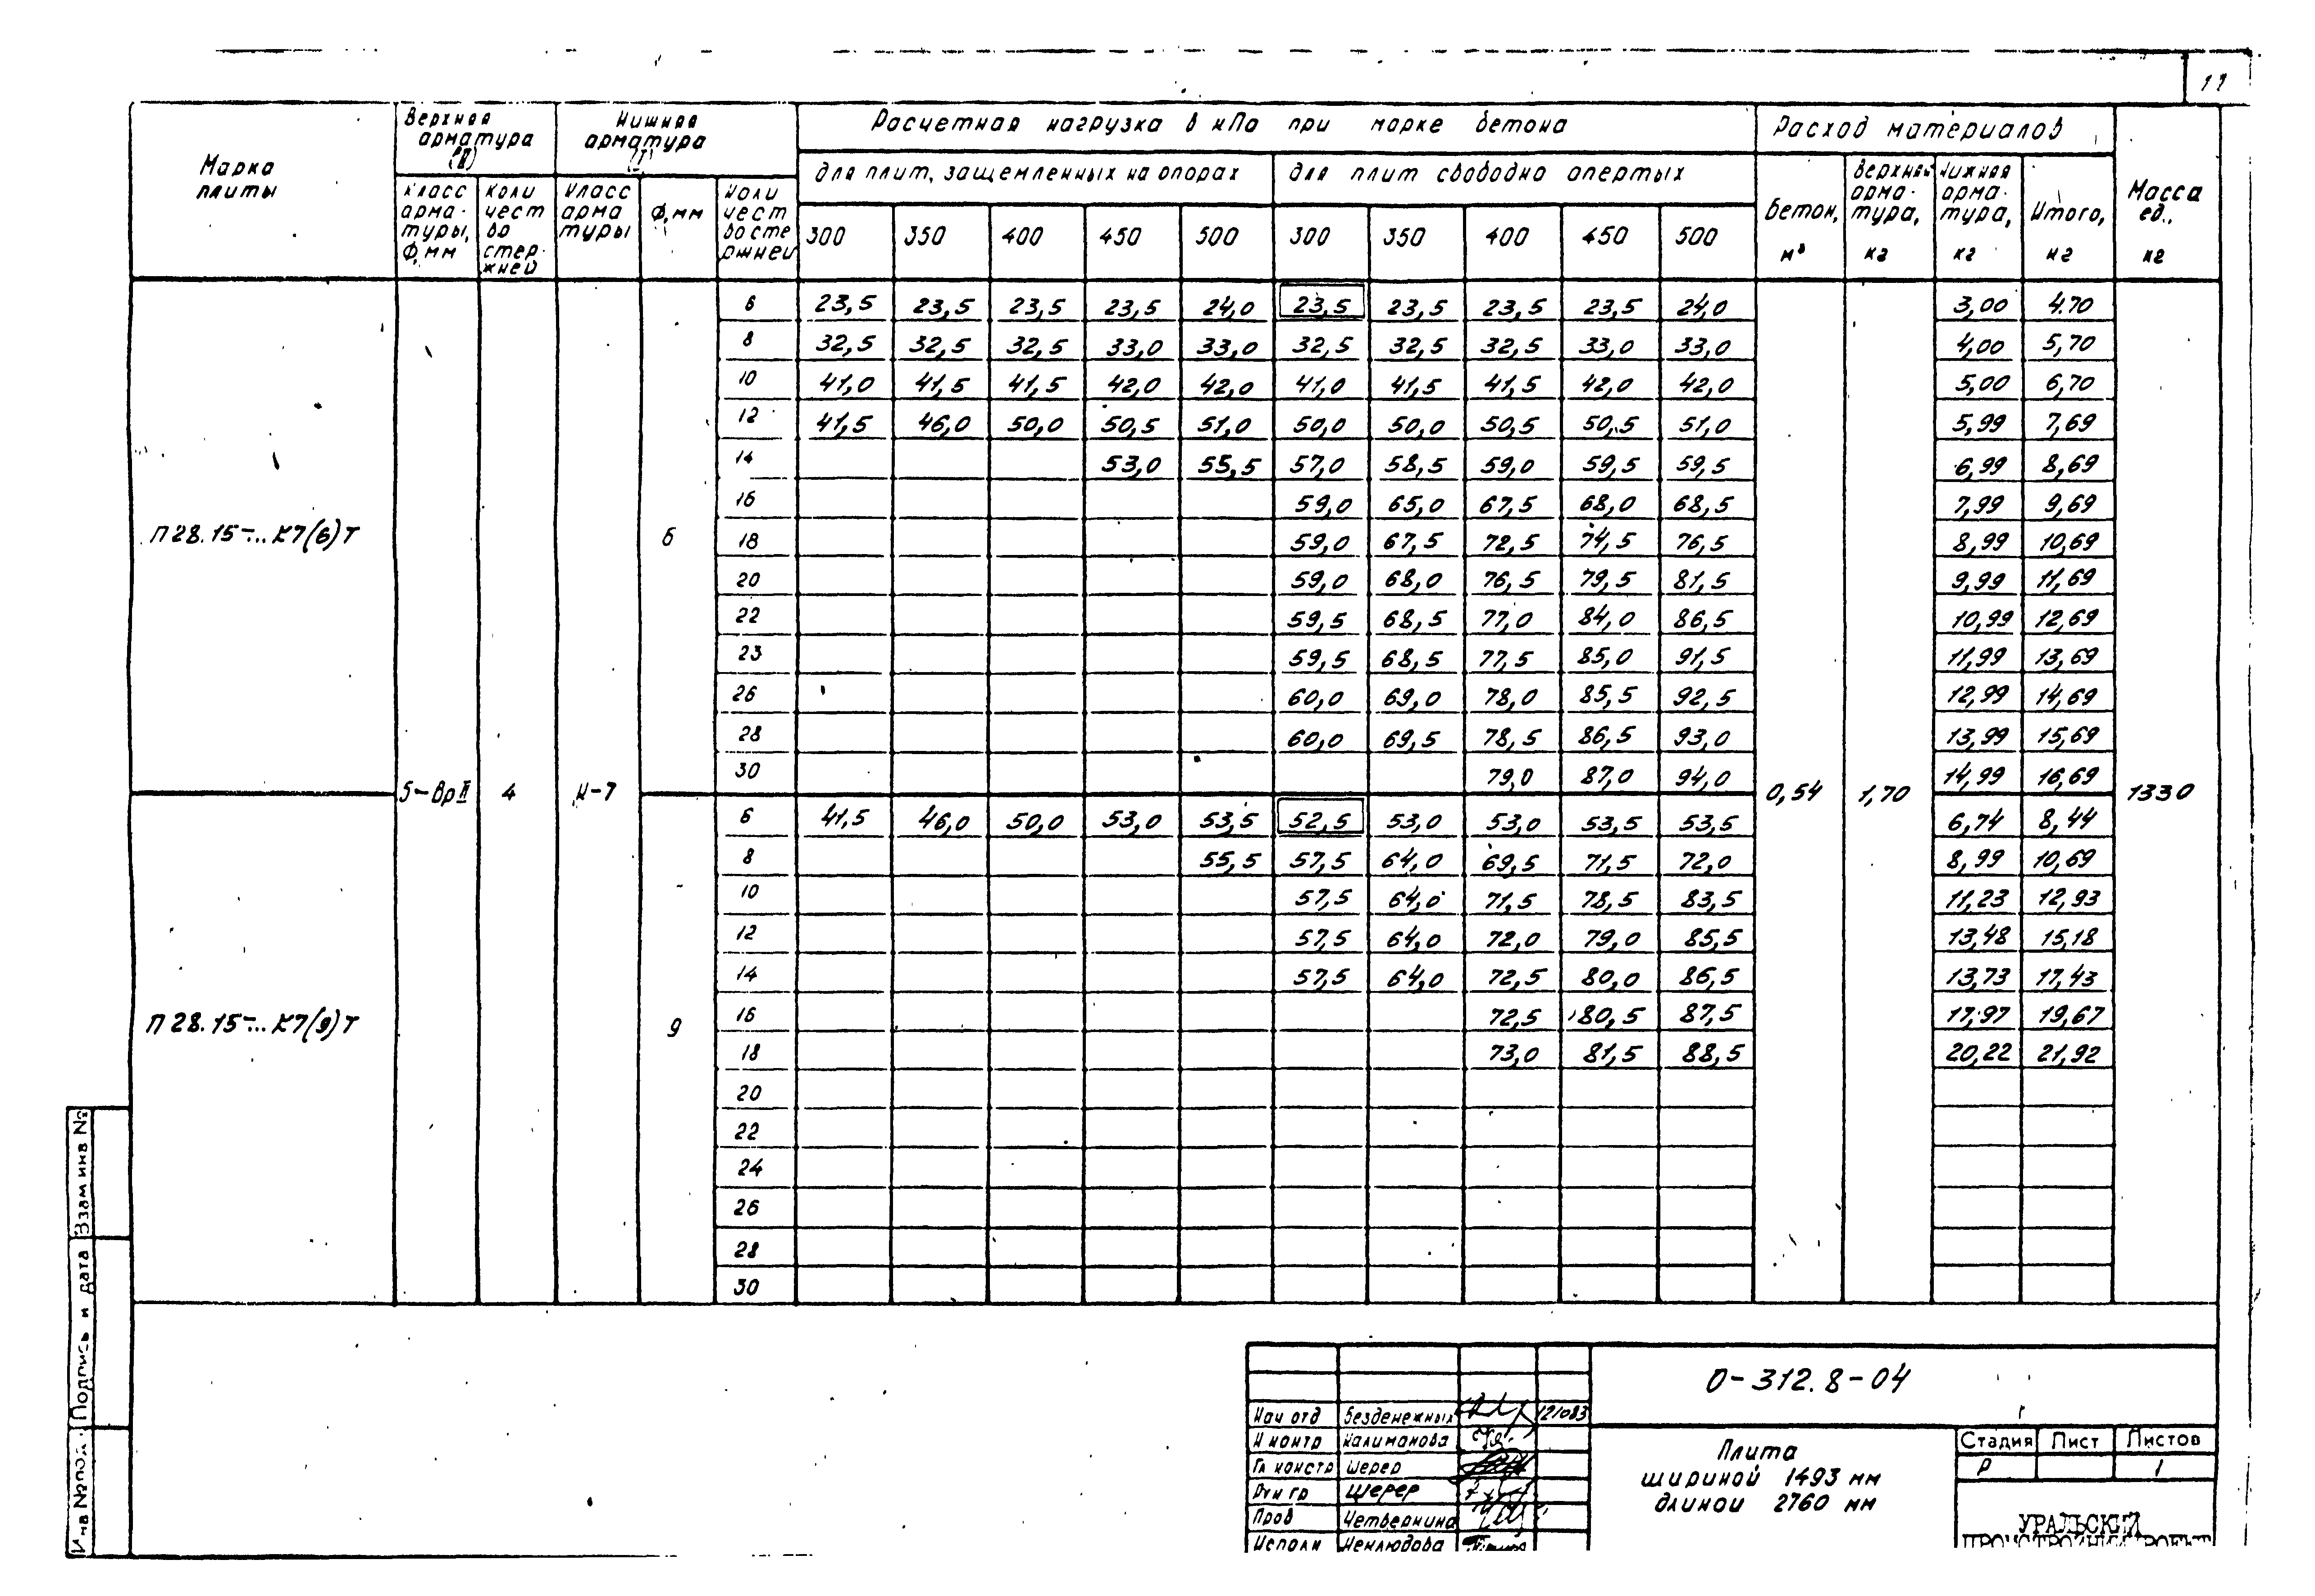 17
Марка плиты
Верхняя арматура
Нижняя арматура
Расчетная нагрузка в кПа при марке бетона
Расход материалов
Масса ед., кг
для плит, защемленных на опорах
для плит свободно опертых
Класс арматуры, Ф, мм
Количество стержней
Класс арматуры
Ф, мм
Количество стержней
300 350 400 450 500 300 350 400 450 500
Бетон, м³
Верхняя арматура, кг
Нижняя арматура, кг
Итого, кг
П 28.15-... К7(6)Т
5-ВрII 4 К-7 6
0,54 1,70 1330
6 23,5 23,5 23,5 23,5 24,0 23,5 23,5 23,5 23,5 24,0 3,00 4.70
8 32,5 32,5 32,5 33,0 33,0 32,5 32,5 32,5 33,0 33,0 4,00 5,70
10 41,0 41,5 41,5 42,0 42,0 41,0 41,5 41,5 42,0 42,0 5,00 6,70
12 41,5 46,0 50,0 50,5 51,0 50,0 50,0 50,5 50,5 51,0 5,99 7,69
14 53,0 55,5 57,0 58,5 59,0 59,5 59,5 6,99 8,69
16 59,0 65,0 67,5 68,0 68,5 7,99 9,69
18 59,0 67,5 72,5 74,5 76,5 8,99 10,69
20 59,0 68,0 76,5 79,5 81,5 9,99 11,69
22 59,5 68,5 77,0 84,0 86,5 10,99 12,69
23 59,5 68,5 77,5 85,0 91,5 11,99 13,69
26 60,0 69,0 78,0 85,5 92,5 12,99 14,69
28 60,0 69,5 78,5 86,5 93,0 13,99 15,69
30 79,0 87,0 94,0 14,99 16,69
П 28.15-... К7(9)Т
9
6 41,5 46,0 50,0 53,0 53,5 52,5 53,0 53,0 53,5 53,5 6,74 8,44
8 55,5 57,5 64,0 69,5 71,5 72,0 8,99 10,69
10 57,5 64,0 71,5 78,5 83,5 11,23 12,93
12 57,5 64,0 72,0 79,0 85,5 13,48 15,18
14 57,5 64,0 72,5 80,0 86,5 13,73 17,43
16 72,5 80,5 87,5 17,97 19,67
18 73,0 81,5 88,5 20,22 21,92
20
22
24
26
28
30
Взам инв №
Подпись и дата
Инв № подл.
О-312.8-04
Нач отд Безденежных 121083
Н контр Калиманова
Гл констр Шерер
Рук гр Шерер
Пров Четвернина
Исполн Неклюдова
Плита
шириной 1493 мм
длиной 2760 мм
Стадия Лист Листов
Р 1
УРАЛЬСКИЙ
ПРОМСТРОЙНИИПРОЕКТ